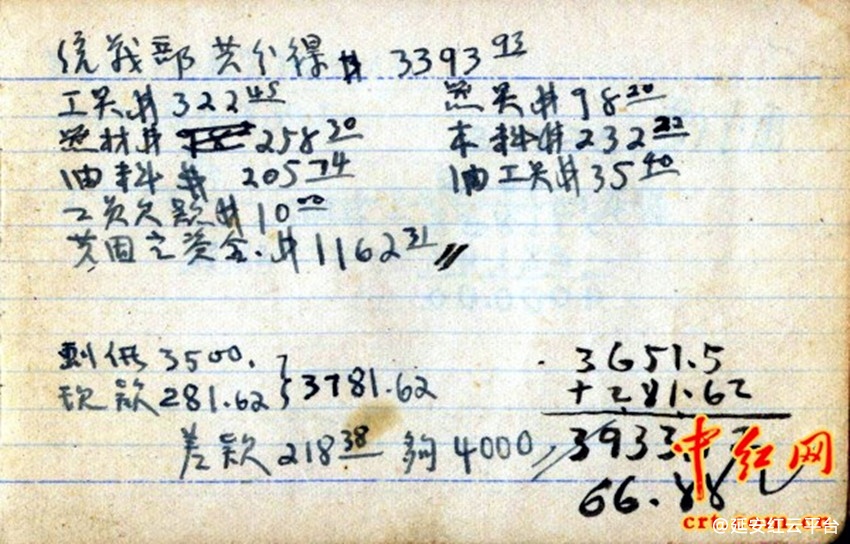 统战部共分得 # 3393.93
工具 # 322.45 照具 # 98.20
照材 # 258.20 木料 # 232.22
油料 # 205.74 油工具 # 35.40
工员欠款 # 10.00
共固定资金. # 1162.31
剩饭 3500.
现款 281.62 } 3781.62
差款 218.38 够 4000
3651.5
+281.62
3933
66.88
中红网
crt.com.cn
@延安红云平台